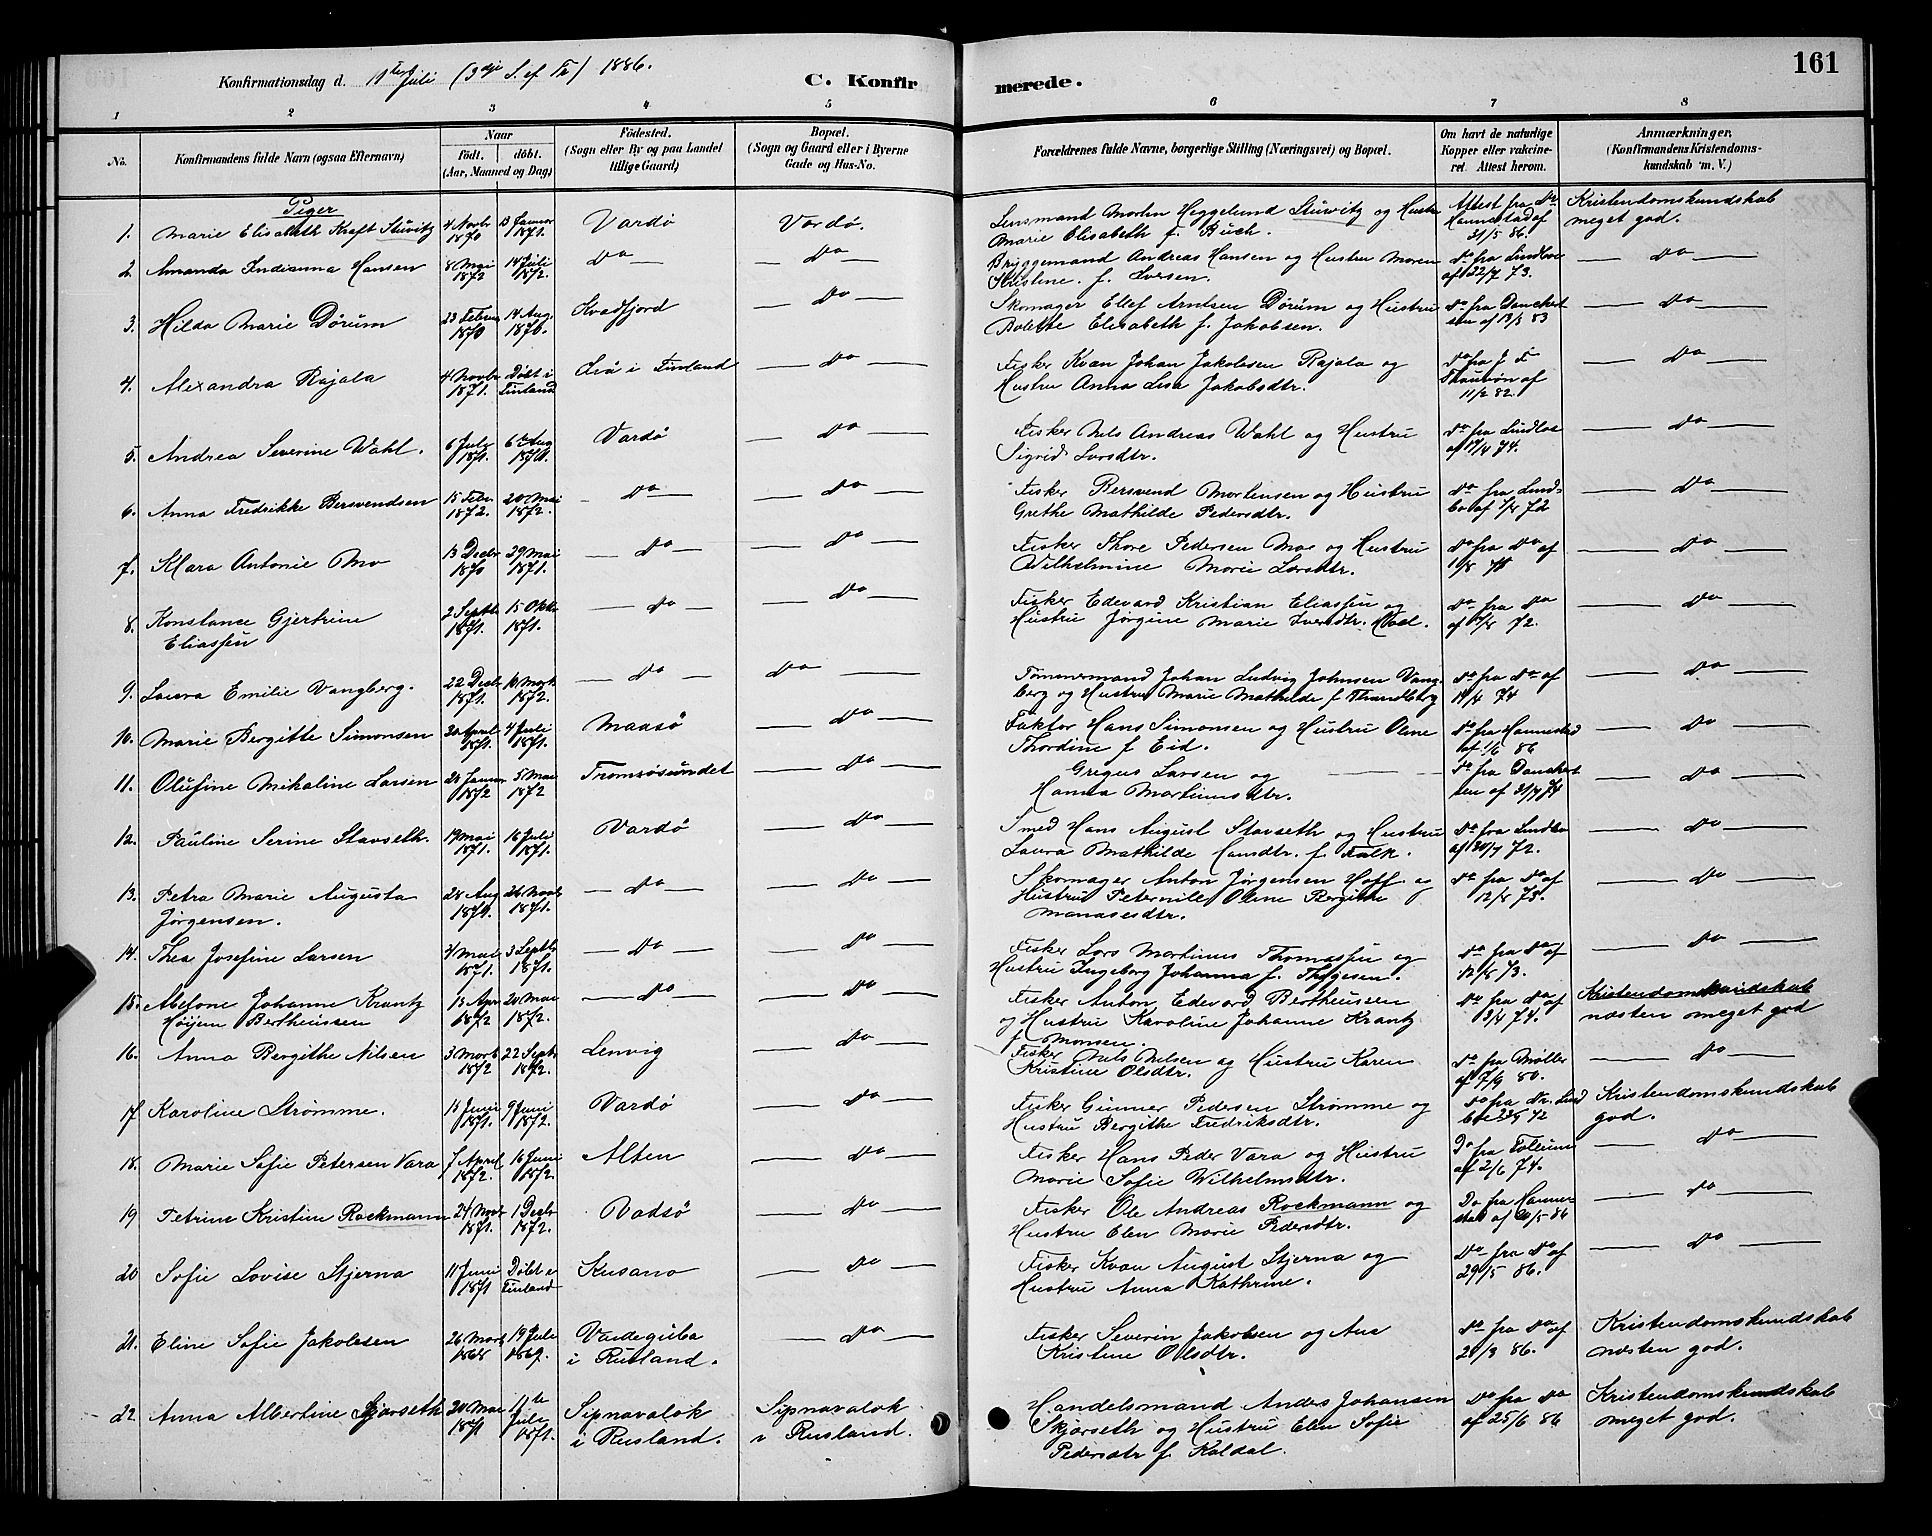 Konfirmationsdag d. 11te Juli (3die S. ef Tr) 1886. C. Konfirmerede. 161
1 2 3 4 5 6 7 8
No. Konfirmandens fulde Navn (ogsaa Efternavn) Naar födt. döbt. (Aar, Maaned og Dag) Födested. (Sogn eller By og paa Landet tillige Gaard) Bopæl. (Sogn og Gaard eller i Byerne Gade og Hus-No. Forældrenes fulde Navne, borgerlige Stilling (Næringsvei) og Bopæl. Om havt de naturlige Kopper eller vakcineret. Attest herom. Anmærkninger. (Konfirmandens Kristendomskundskab m. V.)
Piger
1. Marie Elisabeth Kraft Stüwitz 4 Novbr 1870 13 Januar 1871. Vardö Vardö. Lensmand Morten Heggelund Stüwitz og Hustru Marie Elisabeth f. Buch. Attest fra Dr. Hannestad af 31/5 86. Kristendomskundskab meget god.
2. Amanda Indianna Hansen 8 Mai 1872 14 Juli 1872. Do Do Bryggemand Andreas Hansen og Hustru Maren Kristine f. Iversen. Do fra Lindboe af 22/7 73. Do
3. Hilda Marie Dörum 23 Februar 1870 14 Aug. 1870. Kvædfjord Do Skomager Ellef Arntsen Dörum og Hustru Bolette Elisabeth f. Jakobsen. Do fra Danckertsen af 13/3 83 Do
4. Alexandra Rajala 4 Novbr 1871. Döbt i Finland i Finland Do Fisker Kvæn Johan Jakobsen Rajala og Hustru Anna Lisa Jakobsdtr. Do fra J. F. af 11/2 82. Do
5. Andrea Severine Wahl. 6 Juli 1871. 6te Aug 1871. Vardö Do Fisker Nils Andreas Wahl og Hustru Sigrid Larsdtr. Do fra Lindboe af 17/4 74. Do
6. Anna Fredrikke Bersvendsen 15 Febr 1872. 20 Mai 1872. Do Do Fisker Bersvend Mortensen og Hustru Grethe Mathilde Pedersdtr. Do fra Lindbo af 72 Do
7. Klara Antonie Mo 13 Decbr 1870 29 Mai 1871. Do Do Fisker Thore Pedersen Moe og Hustru Vilhelmine Marie Larsdtr. Do fra Do af Do
8. Konstance Gjertrine Eliassen 2 Septbr 1871. 15 Oktbr 1871. Do Do Fisker Edevard Kristian Eliassen og Hustru Jörgine Marie Iversdtr. Do fra Do af 72. Do
9. Laura Emilie Vangberg. 22 Decbr 1871. 10 Marts 1872. Do Do Tömmermand Johan Ludvig Johnsen Vangberg og Hustru Marie Mathilde f. Strandberg Do fra Do af 74 Do
10. Marie Bergitte Simonsen 30 April 1871. 4 Juli 1871. Maasö Do Faktor Hans Simonsen og Hustru Oline Thordine f. Eid. Do fra Hannestad af 1/6 86 Do
11. Olufine Mikaline Larsen 24 Januar 1872 5 Mai 1872 Tromsösundet Do Gregus Larsen og Hanna Martinusdtr. Do fra Danckertsen af 31/7 74 Do
12. Pauline Serine Stavseth. 19 Mai 1871. 16 Juli 1871. Vardö Do Smed Hans August Stavseth og Hustru Laura Mathilde Hansdtr. f. Falk. Do fra Lindbo af 30/7 72. Do
13. Petra Marie Augusta Jörgensen. 28 Aug 1871. 26 Novbr 1871. Do Do Skomager Anton Jörgensen Hoff og Hustru Peternille Oline Bergithe Manasesdtr. Do fra Do af 12/8 75. Do
14. Thea Josefine Larsen 4 Mai 1871. 3 Septbr 1871. Do Do Fisker Lars Martinus Thomassen og Hustru Ingeborg Johanna f. Thygesen. Do fra Do af 12/8 73. Do
15. Abelone Johanne Krantz Höyem Bertheussen 13 Apr 1872 20 Mai 1872. Do Do Fisker Anton Edevard Bertheussen og Hustru Karoline Johanne Krantz f. Monsen. Do fra Do af 74. Kristendomskundskab næsten meget god
16. Anna Bergithe Nilsen 3 Marts 1872 22 Sept 1872. Lenvig Do Fisker Nils Nilsen og Hustru Karen Kristine Olsdtr. Do fra Möller af 7/9 80. Do
17. Karoline Strömme. 15 Juni 1871. 9 Juni 1872. Vardö Do Fisker Gunner Pedersen Strömme og Hustru Bergithe Fredriksdtr. Do fra Dr. Lindboe 72 Kristendomskundskab god.
18. Marie Sofie Petersen Vara 7 April 1872. 16 Juni 1872. Alten Do Fisker Hans Peder Vara og Hustru Marie Sofie Wilhelmsdtr. Do fra af 2/6 74. Do
19 Petrine Kristine Rockmann 24 Novbr 1871. 1 Decbr 1872. Vadsö Do Fisker Ole Andreas Rockmann og Hustru Elen Marie Pedersdtr. Do fra Hannestad af 20/5 86 Do
20 Sofie Lovise Stjerna 11 Juni 1871 Döbt i Finland Kusamo Do Fisker Kvæn August Stjerna og Hustru Anna Kathrine. Do fra Do af 29/5 86. Do
21. Eline Sofie Jakobsen 26 Marts 1868 19 Juli 1869. Vaidaguba i Rusland. Do Fisker Severin Jakobsen og Ane Kristine Olsdtr. Do fra Do af 28/3 86. Kristendomskundskab næsten god.
22. Anna Albertine Skjærseth 20 Mai 1871 11te Juli 1871. Sipnavalok i Rusland. Sipnavalok i Rusland. Handelsmand Anders Johansen Skjærseth og Hustru Elen Sofie Pedersdtr f. Kaldal. Do fra Do af 25/6 86 Kristendomskundskab meget god.